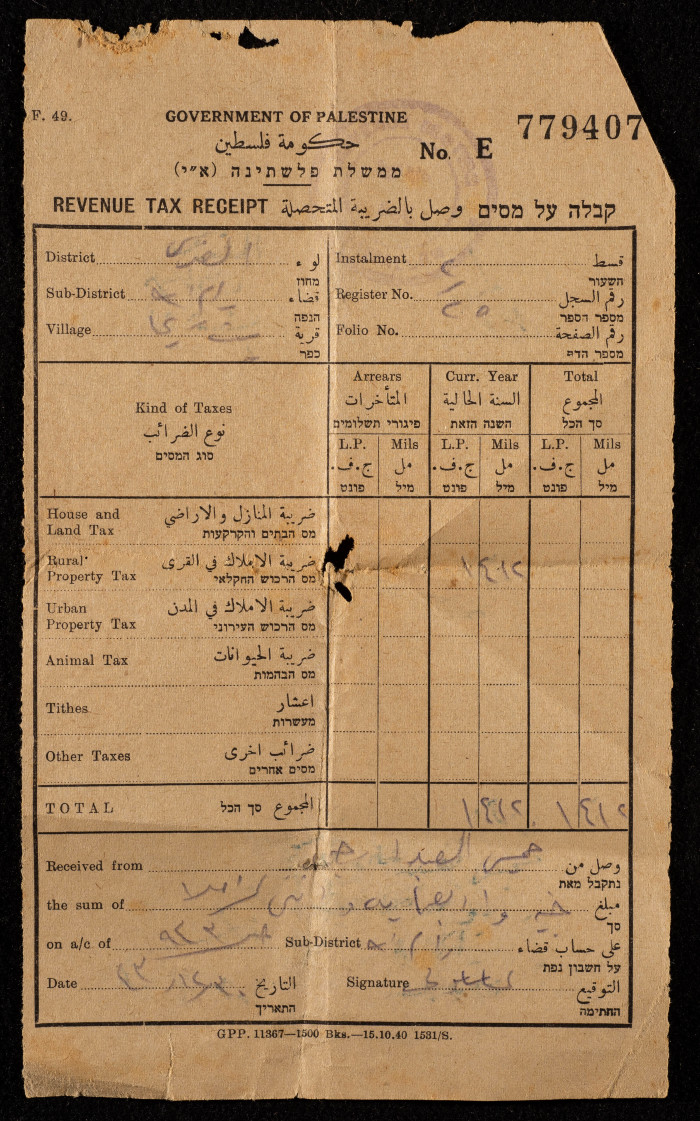 F. 49.
GOVERNMENT OF PALESTINE
حكومة فلسطين
ממשלת פלשתינה (א״י)
No. E 779407
REVENUE TAX RECEIPT وصل بالضريبة المتحصلة קבלה על מסים
District القدس لواء
מחוז
Sub-District رام الله قضاء
הנפה
Village قرية
כפר
Instalment قسط
השעור
Register No. رقم السجل
מספר הספר
Folio No. رقم الصفحة
מספר הדף
Kind of Taxes
نوع الضرائب
סוג המסים
Arrears
المتأخرات
פיגורי תשלומים
Curr. Year
السنة الحالية
השנה הזאת
Total
المجموع
סך הכל
L.P. Mils L.P. Mils L.P. Mils
ج.ف. مل ج.ف. مل ج.ف. مل
פונט מיל פונט מיל פונט מיל
House and ضريبة المنازل والاراضي
Land Tax מס הבתים והקרקעות
Rural ضريبة الاملاك في القرى
Property Tax מס הרכוש החקלאי
Urban ضريبة الاملاك في المدن
Property Tax מס הרכוש העירוני
Animal Tax ضريبة الحيوانات
מס הבהמות
Tithes اعشار
מעשרות
Other Taxes ضرائب اخرى
מסים אחרים
TOTAL סך הכל المجموع
Received from وصل من
נתקבל מאת
the sum of مبلغ
סך
on a/c of ٩٤٣ Sub-District رام الله على حساب قضاء
על חשבון נפת
Date التاريخ
התאריך
Signature التوقيع
החתימה
GPP. 11367—1500 Bks.—15.10.40 1531/S.